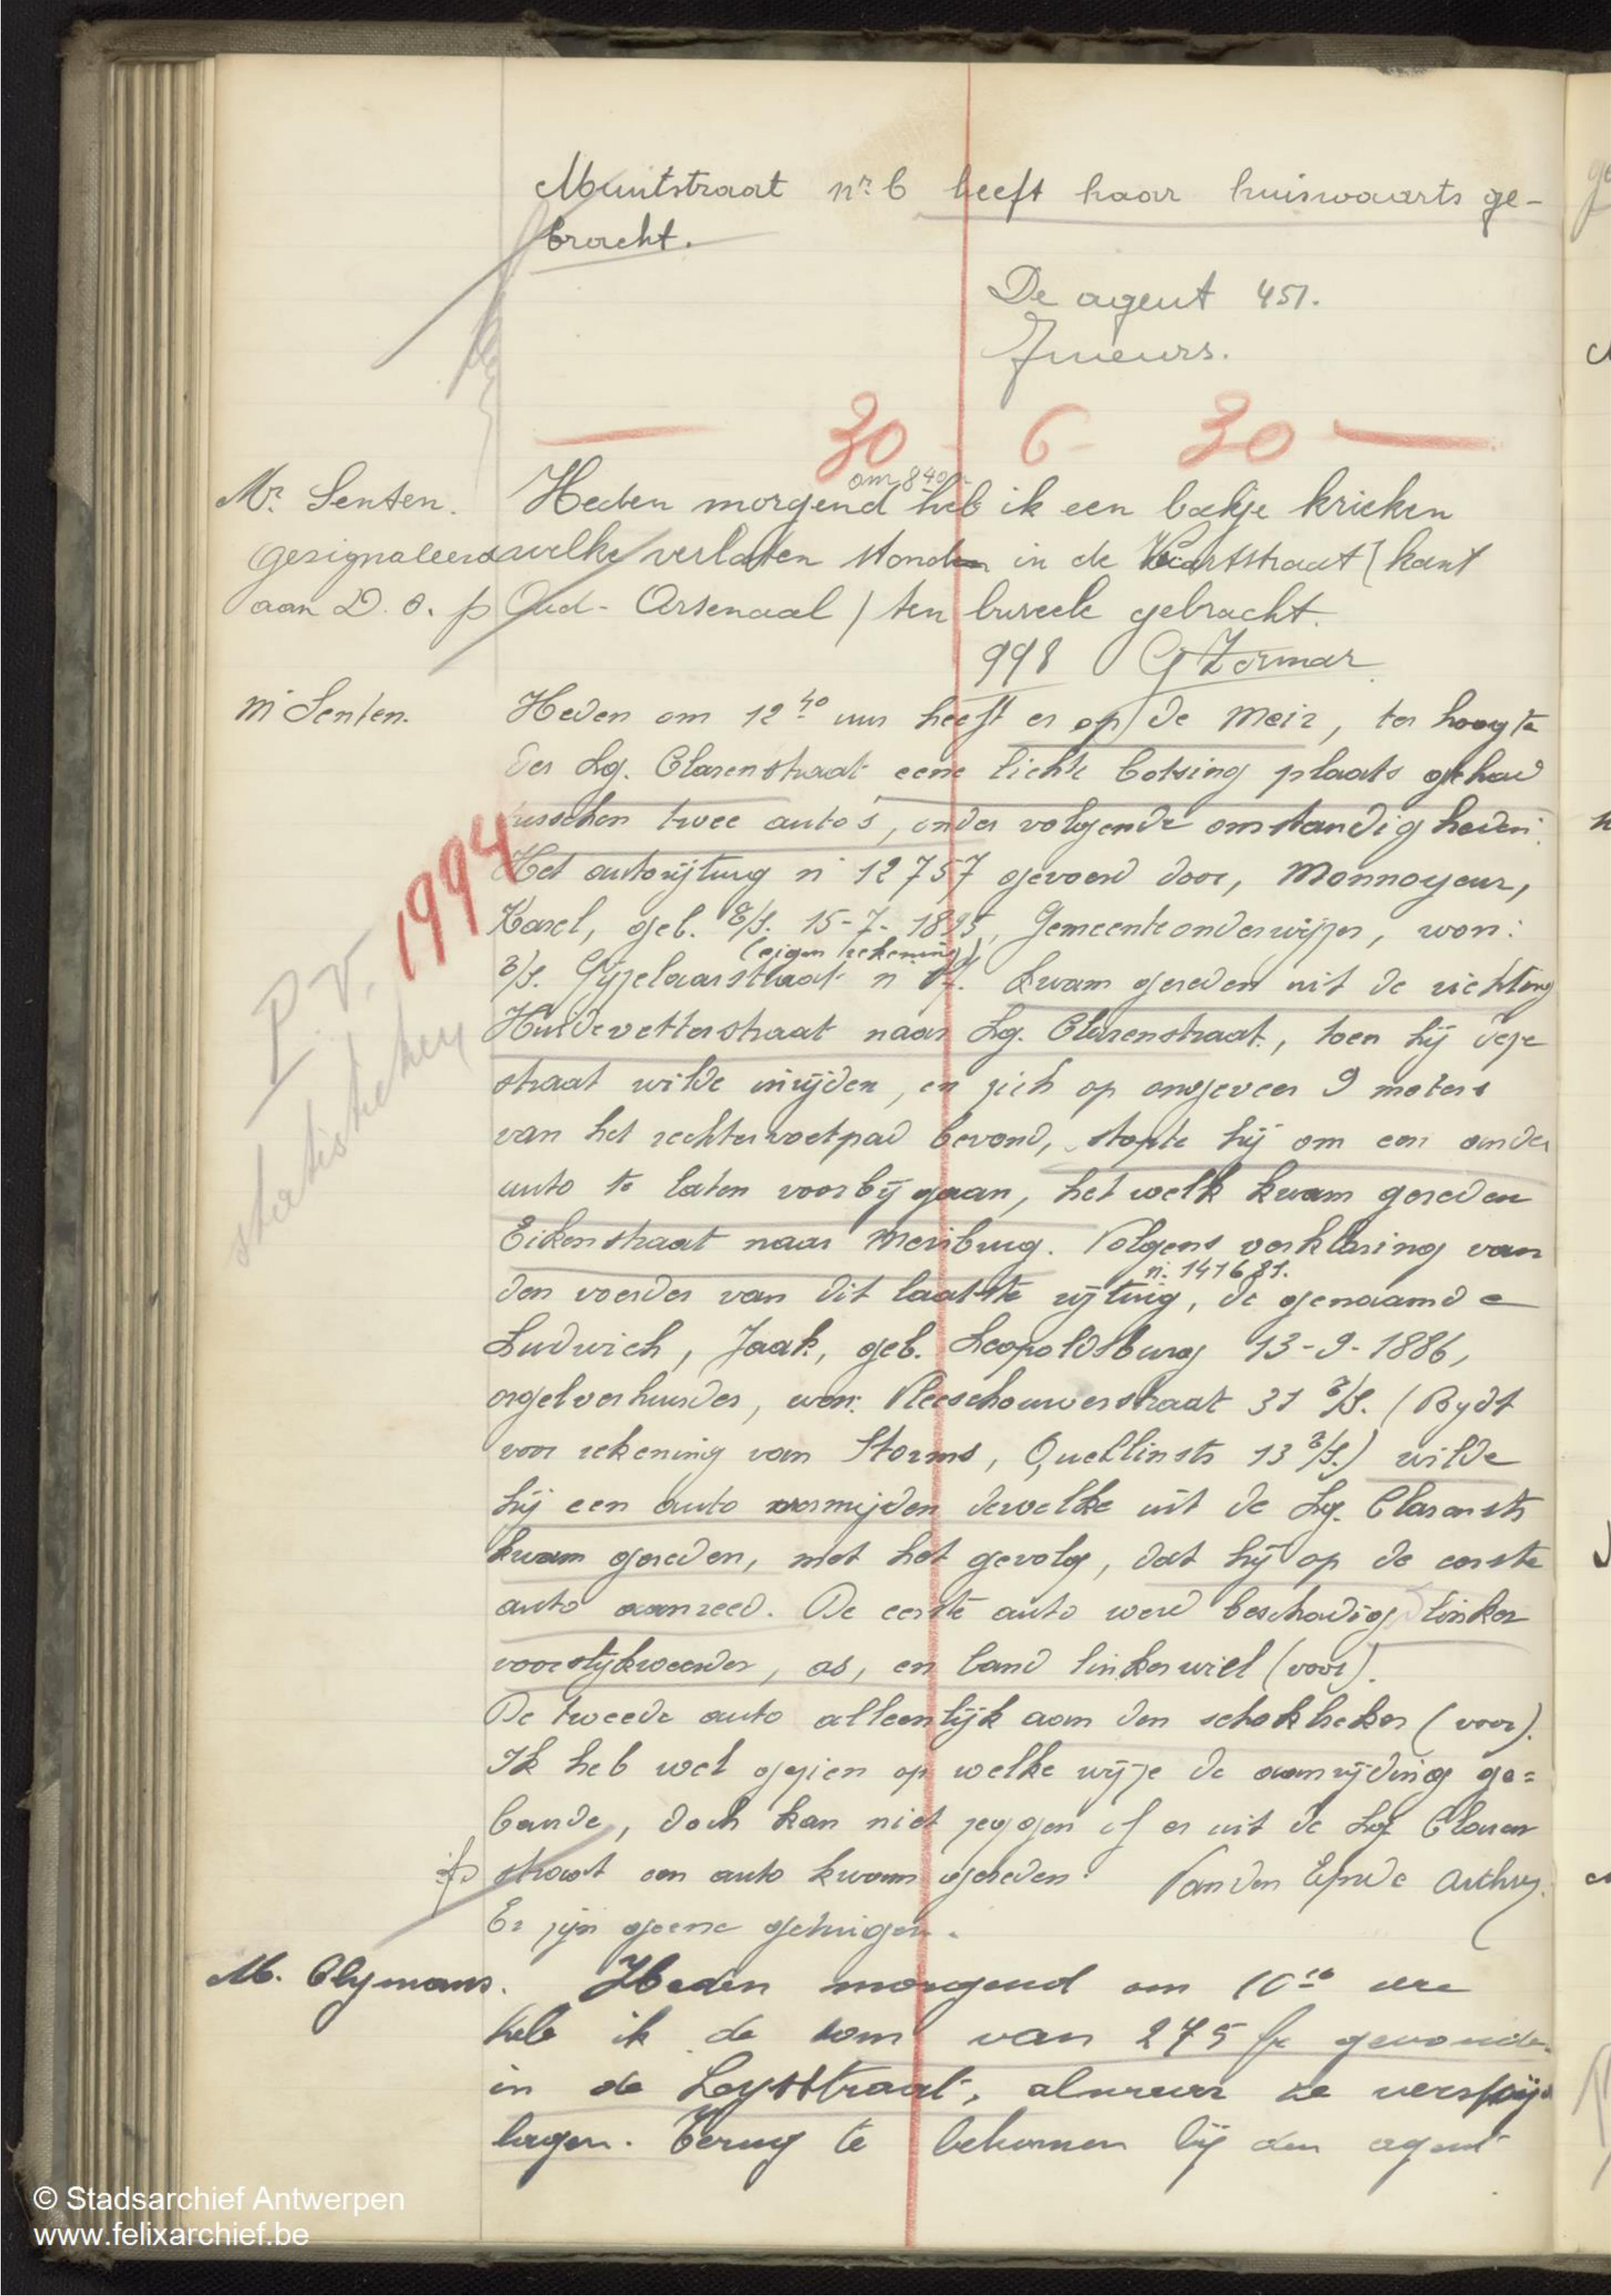 Muntstraat nr 6 heeft haar huiswaarts ge-
bracht.
De agent 451.
30 - 6 - 30
om 8 40
Mr Senten. Heden morgend heb ik een bakje krieken
gesignaleerd welke verlaten stond in de Vaartstraat (kant
aan D. O. Oud-Arsenaal) ten bureele gebracht.
998
Mr Senten. Heden om 12 40 uur heeft er op de Meir, ter hoogte
der Lg. Clarenstraat eene lichte botsing plaats gehad
tusschen twee auto's, onder volgende omstandigheden:
1994
Het autorijtuig n° 12757 gevoerd door, Monnoyeur,
Karel, geb. B/S. 15-7-1895, Gemeenteonderwijzer, won:
(eigen rekening)
B/S. Gijzelaarstraat n° 17. Kwam gereden uit de richting
P.V.
Huidevetterstraat naar Lg. Clarenstraat, toen hij deze
straat wilde inrijden, en zich op ongeveer 9 meters
van het rechtervoetpad bevond, stopte hij om een ander
auto te laten voorbijgaan, het welk kwam gereden
Eikenstraat naar Meirbrug. Volgens verklaring van
n: 141681.
den voerder van dit laatste rijtuig, de genaamde
Ludwich, Jaak, geb. Leopoldsburg 13-9-1886,
orgelverhuurder, won: Vleeschouwerstraat 31 B/S. (Rydt
voor rekening van Storms, Quellinstr 13 B/S.) wilde
hij een auto vermijden dewelke uit de Lg. Clarenstr
kwam gereden, met het gevolg, dat hij op de eerste
auto aanreed. De eerste auto werd beschadigd linker
voorslijkweerder, as, en band linkerwiel (voor).
De tweede auto alleenlijk aan den schokbreker (voor).
Ik heb wel gezien op welke wijze de aanrijding ge=
beurde, doch kan niet zeggen of er uit de Lg Claren
straat een auto kwam gereden. Van den Eynde Arthur.
Er zijn geene getuigen.
M. Clymans. Heden morgend om 10 10 ure
heb ik de som van 275 fr gevonden
in de Leysstraat, alwaar ze verspreid
lagen. Terug te bekomen bij den agent
© Stadsarchief Antwerpen
www.felixarchief.be